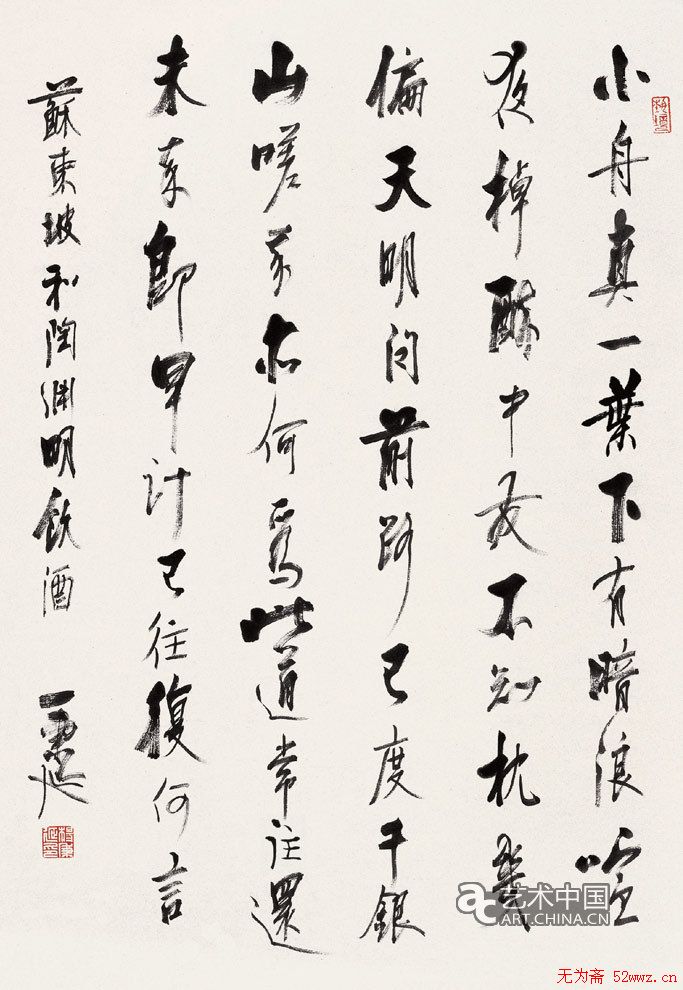 小舟真一葉下有暗浪喧
夜棹醉中发不知枕幾
偏天明问前路已度千銀
山嗟我亦何為此道常往還
未来即早计已往復何言
蘇東坡和陶渊明飲酒
艺术中国
ART.CHINA.CN
无为斋 52wwz.cn